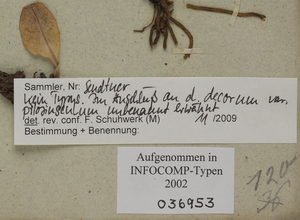 Sammler, Nr: Sendtner
kein Typus. Im Anschluß an d. decorum var.
pilosingulum unbenannt erwähnt
det. rev. conf. F. Schuhwerk (M) 11/2009
Bestimmung + Benennung:
Aufgenommen in
INFOCOMP-Typen
2002
036953
120